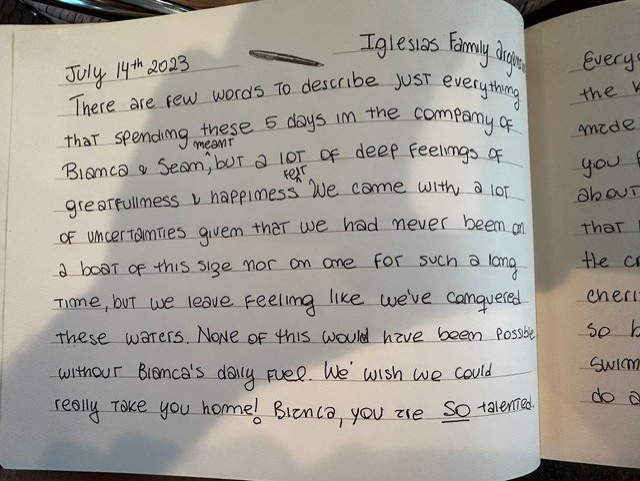 July 14th 2023
Iglesias Family
There are few words to describe just everything
that spending these 5 days in the company of
meant
Bianca & Sean, but a lot of deep feelings of
felt
greatfullness & happiness We came with a lot
of uncertainties given that we had never been on
a boat of this size nor on one for such a long
time, but we leave feeling like we've conquered
these waters. None of this would have been possible
without Bianca's daily fuel. We wish we could
really take you home! Bianca, you are SO talented.
the
made
you
about
that
the
cheri
so b
swim
do a